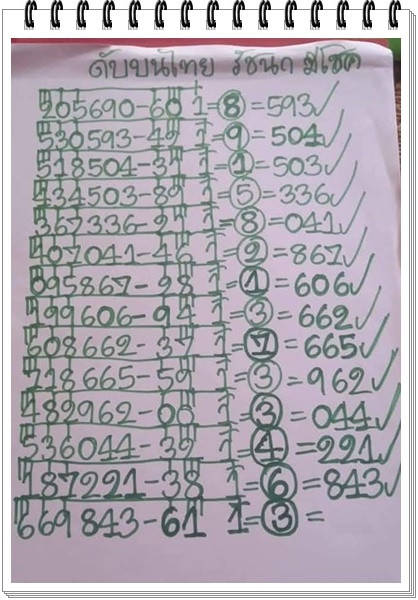 ดับบนไทย รัชนก มีโชค
205690-60 1=8=593✓
530593-49 1=9=504✓
518504-37 1=1=503✓
434503-89 1=5=336✓
367336- 1=8=041✓
407041-46 1=2=867✓
095867-98 1=1=606✓
199606-94 1=3=662✓
608662-37 1=7=665✓
718665-59 1=3=962✓
482962-00 1=3=044✓
536044-39 1=4=221✓
187221-38 1=6=843✓
669843-61 1=3=